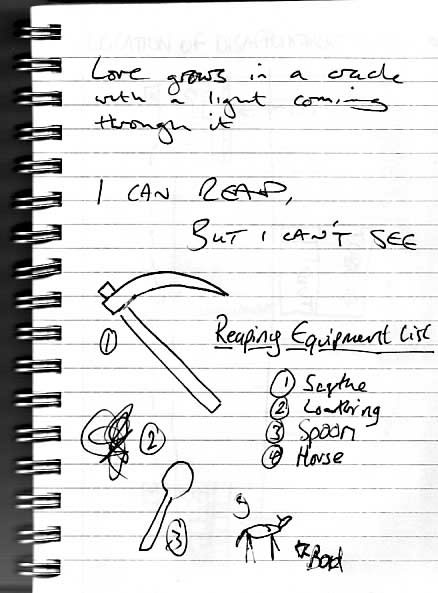 Love grows in a crack
with a light coming
through it
I CAN READ,
BUT I CAN'T SEE
Reaping Equipment List
① Scythe
② Loathing
③ Spoon
④ Horse
①
②
③
Bad